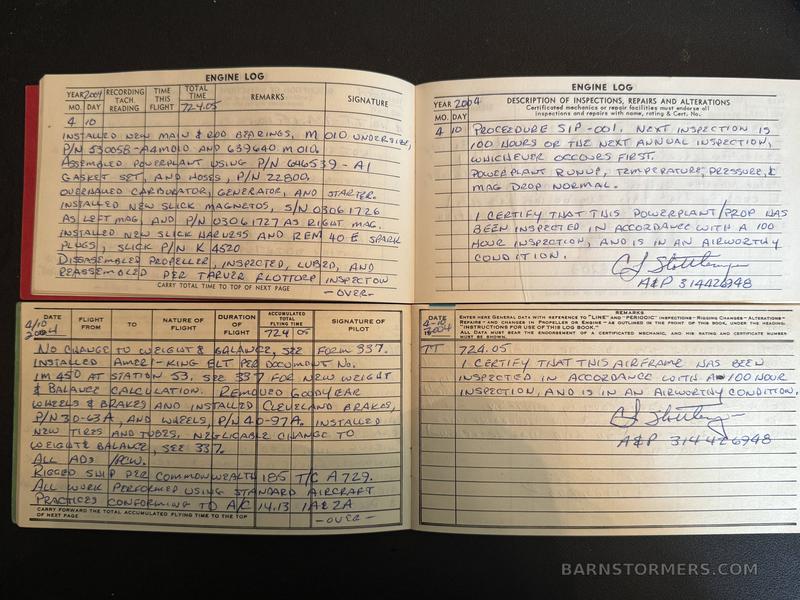 ENGINE LOG
YEAR 2004 RECORDING TACH. READING TIME THIS FLIGHT TOTAL TIME 724.05 REMARKS SIGNATURE
MO. DAY
4 10
INSTALLED NEW MAIN & ROD BEARINGS, M 010 UNDERSIZE,
P/N 530058-A4M010 AND 639640 M 010.
ASSEMBLED POWERPLANT USING P/N 646539-A1
GASKET SET, AND HOSES, P/N 22800.
OVERHAULED CARBURATOR, GENERATOR, AND STARTER.
INSTALLED NEW SLICK MAGNETOS, S/N 03061726
AS LEFT MAG, AND P/N 03061727 AS RIGHT MAG.
INSTALLED NEW SLICK HARNESS AND REM 40 E SPARK
PLUGS, SLICK P/N K 4520
DISASSEMBLED PROPELLER, INSPECTED, LUBED, AND
REASSEMBLED PER TARVER FLOTTORP INSPECTION
CARRY TOTAL TIME TO TOP OF NEXT PAGE
-OVER-
ENGINE LOG
YEAR 2004 DESCRIPTION OF INSPECTIONS, REPAIRS AND ALTERATIONS
Certificated mechanics or repair facilities must endorse all
MO. DAY inspections and repairs with name, rating & Cert. No.
4 10 PROCEDURE SIP-001. NEXT INSPECTION IS
100 HOURS OR THE NEXT ANNUAL INSPECTION,
WHICHEVER OCCOURS FIRST.
POWERPLANT RUNUP, TEMPERATURE, PRESSURE, &
MAG DROP NORMAL.
I CERTIFY THAT THIS POWERPLANT/PROP HAS
BEEN INSPECTED IN ACCORDANCE WITH A 100
HOUR INSPECTION, AND IS IN AN AIRWORTHY
CONDITION.
A&P 314426948
DATE 4/10 2004 FLIGHT FROM TO NATURE OF FLIGHT DURATION OF FLIGHT ACCUMULATED TOTAL FLYING TIME 724 05 SIGNATURE OF PILOT
NO CHANGE TO WEIGHT & BALANCE, SEE FORM 337.
INSTALLED AMERI-KING ELT PER DOCUMENT NO.
IM 450 AT STATION 53. SEE 337 FOR NEW WEIGHT
& BALANCE CALCULATION. REMOVED GOODYEAR
WHEELS & BRAKES AND INSTALLED CLEVELAND BRAKES,
P/N 30-63A, AND WHEELS, P/N 40-97A. INSTALLED
NEW TIRES AND TUBES. NEGLICABLE CHANGE TO
WEIGHT & BALANCE, SEE 337.
ALL ADS /PCW.
RIGGED SHIP PER COMMONWEALTH 185 T/C A 729.
ALL WORK PERFORMED USING STANDARD AIRCRAFT
PRACTICES CONFORMING TO A/C 14.13 1A & 2A
CARRY FORWARD THE TOTAL ACCUMULATED FLYING TIME TO THE TOP
OF NEXT PAGE
-OVER-
REMARKS
DATE 4-10 2004 ENTER HERE GENERAL DATA WITH REFERENCE TO "LINE" AND "PERIODIC" INSPECTIONS-RIGGING CHANGES-ALTERATIONS-
REPAIRS-AND CHANGES IN PROPELLER OR ENGINE-AS OUTLINED IN THE FRONT OF THIS BOOK, UNDER THE HEADING:
"INSTRUCTIONS FOR USE OF THIS LOG BOOK."
ALL DATA MUST BEAR THE ENDORSEMENT OF A CERTIFICATED MECHANIC, AND HIS RATING AND CERTIFICATE NUMBER
MUST BE SHOWN.
TT 724.05
I CERTIFY THAT THIS AIRFRAME HAS BEEN
INSPECTED IN ACCORDANCE WITH A 100 HOUR
INSPECTION, AND IS IN AN AIRWORTHY CONDITION.
A&P 314426948
BARNSTORMERS.COM